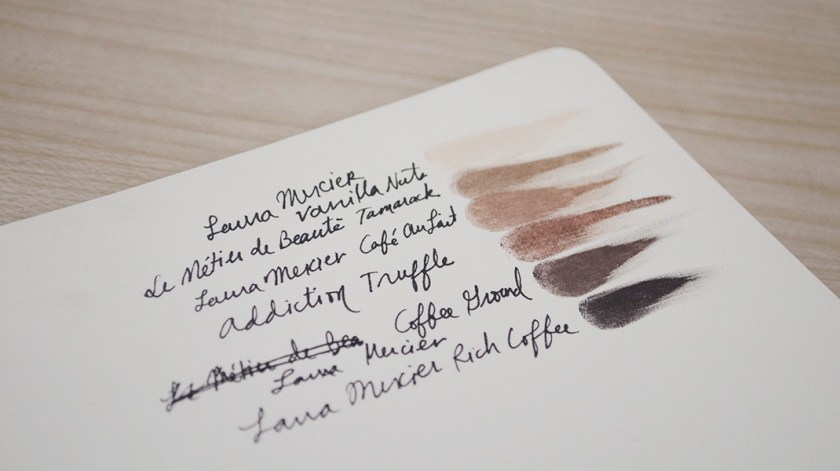 Laura Mercier Vanilla Nuts
Le Métier de Beauté Tamarack
Laura Mercier Café Au Lait
Addiction Truffle
Le Métier de Bea
Laura Mercier Coffee Ground
Laura Mercier Rich Coffee